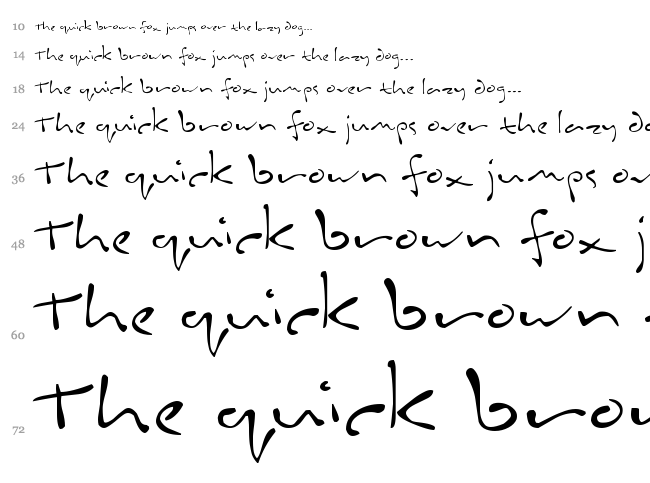 10 The quick brown fox jumps over the lazy dog...
14 The quick brown fox jumps over the lazy dog...
18 The quick brown fox jumps over the lazy dog...
24 The quick brown fox jumps over the lazy do
36 The quick brown fox jumps ov
48 The quick brown fox j
60 The quick brown
72 The quick brow